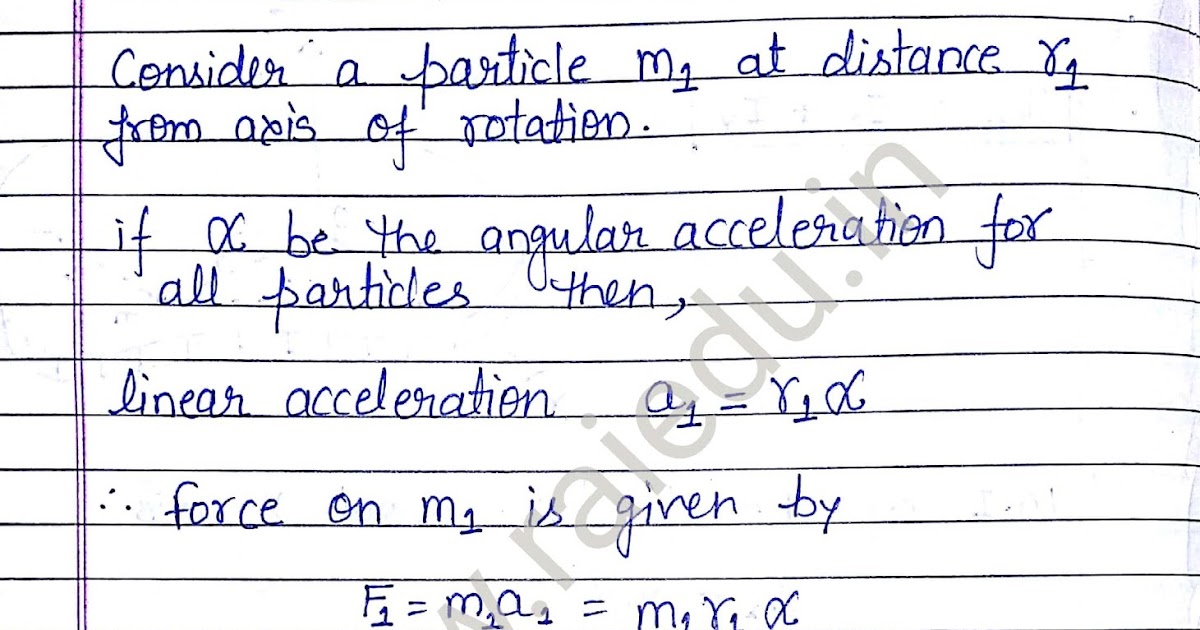 Consider a particle m₁ at distance r₁
from axis of rotation.
if α be the angular acceleration for
all particles then,
linear acceleration a₁ = r₁α
∴ force on m₁ is given by
F₁ = m₁a₁ = m₁r₁α
w.raiedu.in